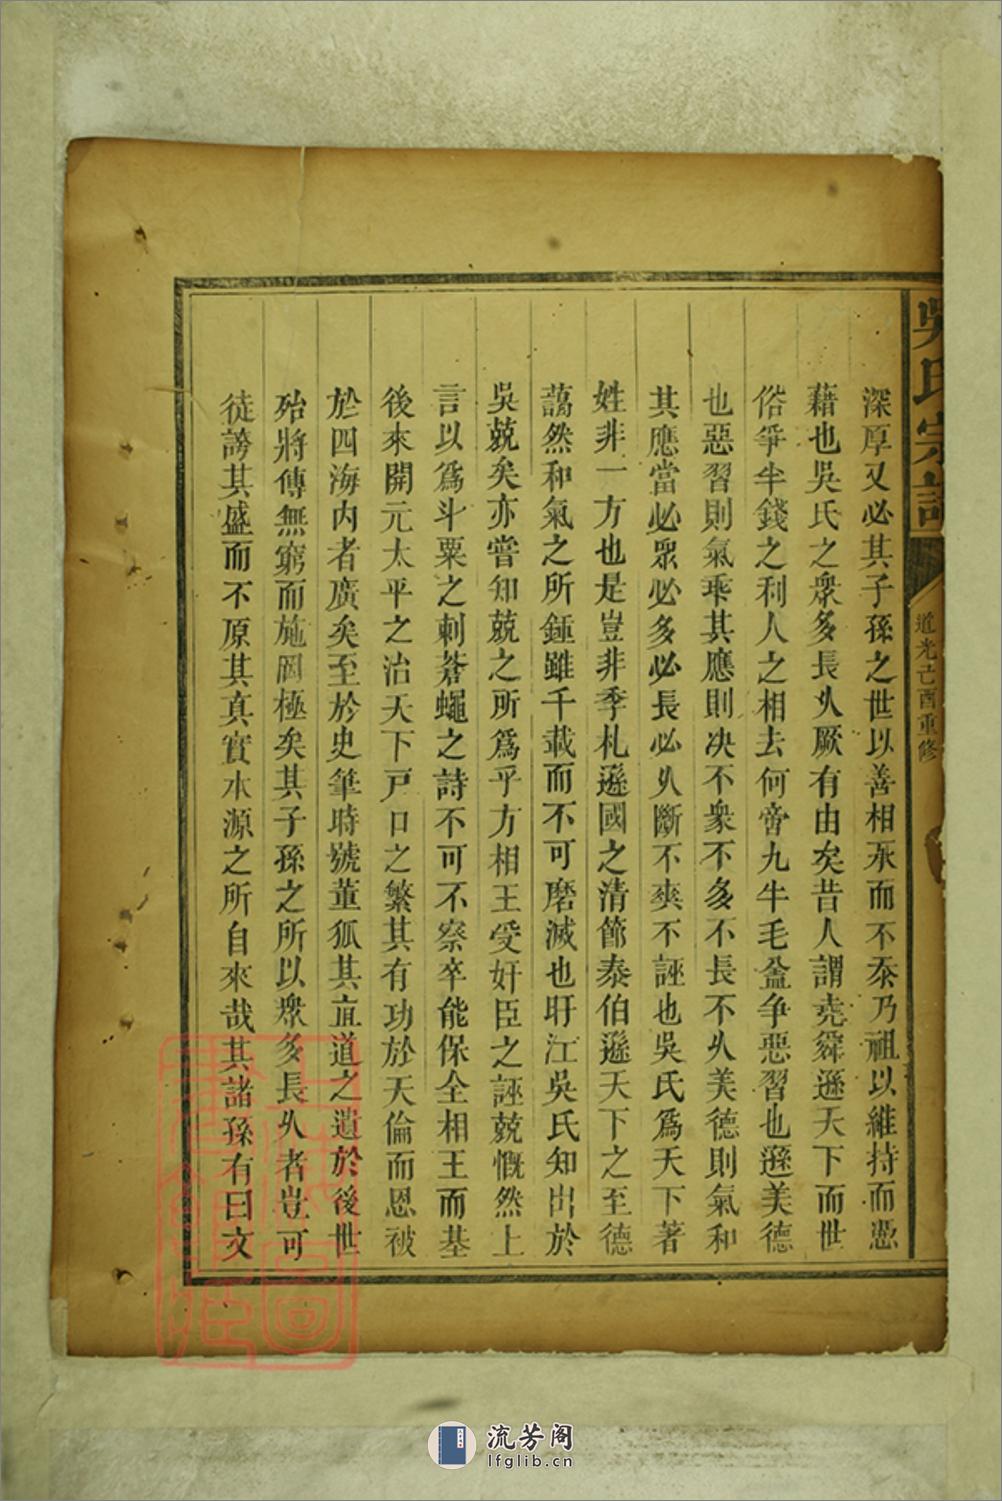 吳氏宗譜
道光己酉重修
深厚又必其子孫之世以善相承而不忝乃祖以維持而憑
藉也吳氏之衆多長乆厥有由矣昔人謂堯舜遜天下而世
俗爭半錢之利人之相去何啻九牛毛葢争惡習也遜美德
也惡習則氣乖其應則决不衆不多不長不乆美德則氣和
其應當必眾必多必長必乆斷不爽不誣也吳氏爲天下著
姓非一方也是豈非季札遜國之清節泰伯遜天下之至德
藹然和氣之所鍾雖千載而不可磨滅也盱江吳氏知出於
吳兢矣亦嘗知兢之所爲乎方相王受奸臣之誣兢慨然上
言以爲斗粟之刺蒼蠅之詩不可不察卒能保全相王而基
後來開元太平之治天下戸口之繁其有功於天倫而恩被
於四海内者廣矣至於史筆時號董狐其直道之遺於後世
殆將傳無窮而施罔極矣其子孫之所以衆多長乆者豈可
徒誇其盛而不原其真實本源之所自來哉其諸孫有曰文
流芳阁
lfglib.cn